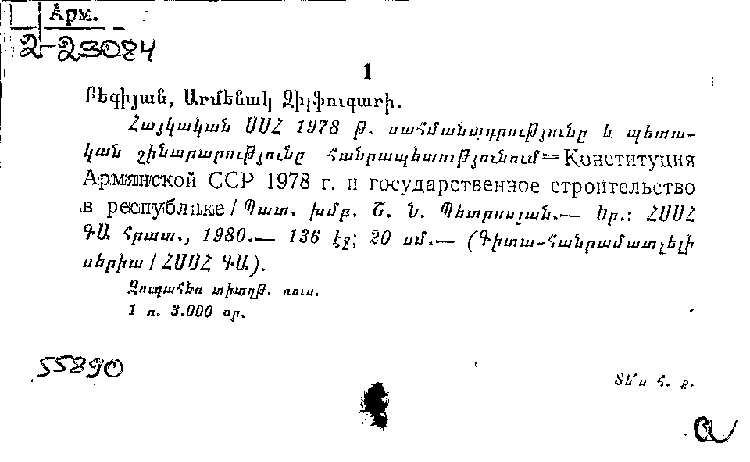 Арм.
2-23084
1
Բեգիյան, Արմենակ Զիլֆուգարի.
Հայկական ՍՍՀ 1978 թ. սահմանադրությունը և պետա-
կան շինարարությունը հանրապետությունում = Конституция
Армянской ССР 1978 г. и государственное строительство
в республике / Պատ. խմբ. Շ. Ն. Պետրոսյան.— Եր.: ՀՍՍՀ
ԳԱ հրատ., 1980.— 136 էջ; 20 սմ.— (Գիտա-հանրամատչելի
սերիա / ՀՍՍՀ ԳԱ).
Զուգահեռ տիտղթ. ռուս.
1 ռ. 3.000 օր.
55890
Տե՛ս հ. ք.